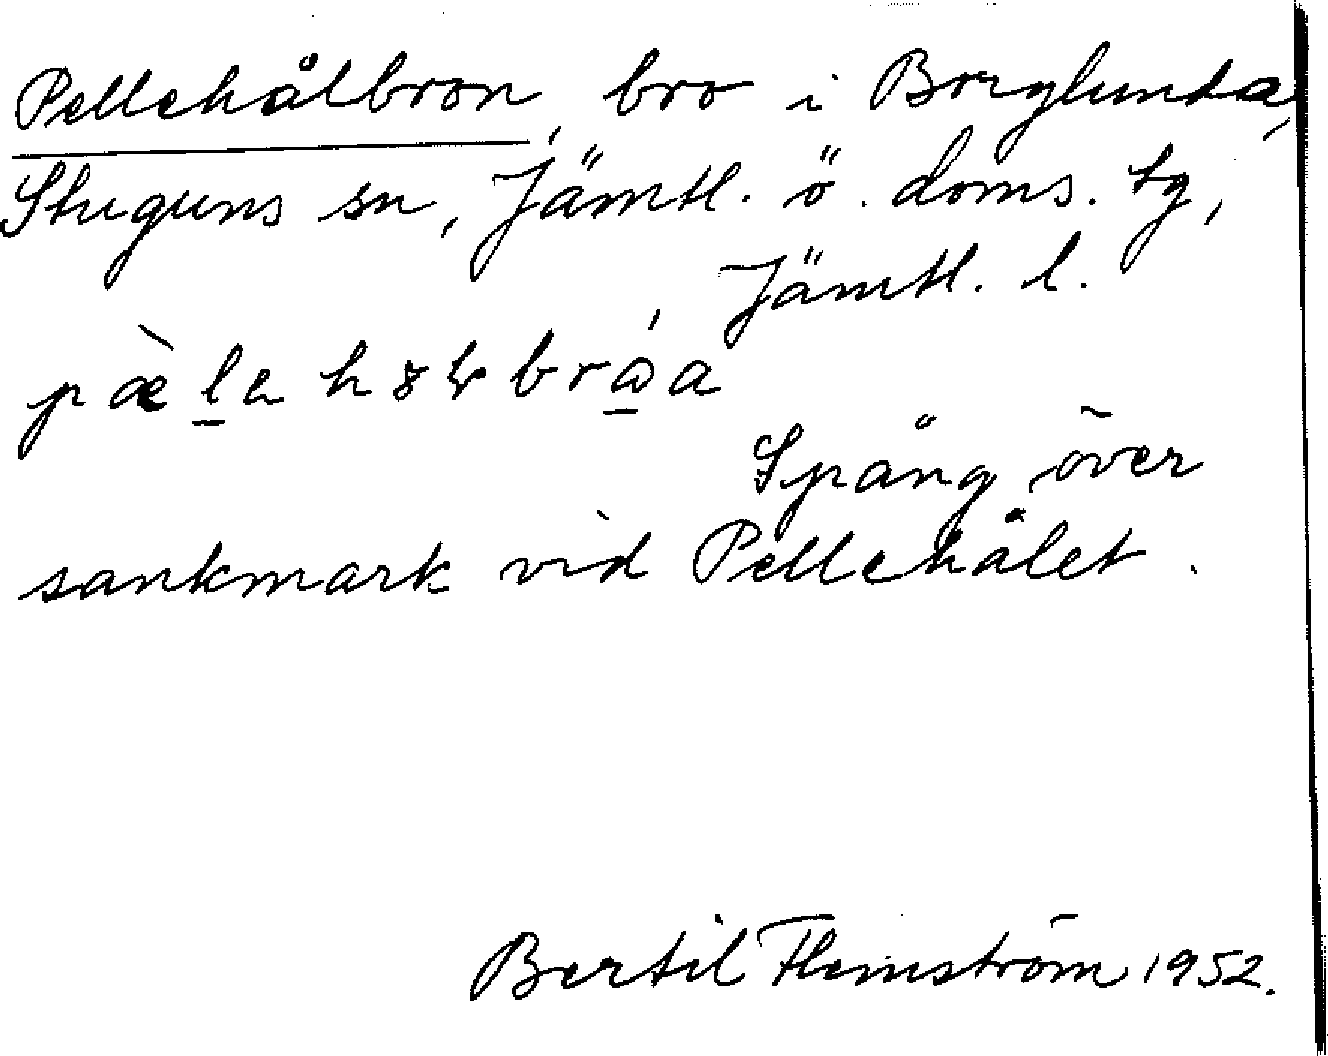 Pellehålbron, bro i Borglunda,
Stuguns sn, Jämtl. ö. doms. tg,
Jämtl. l.
Spång över
sankmark vid Pellehålet.
Bertil Flemström 1952.